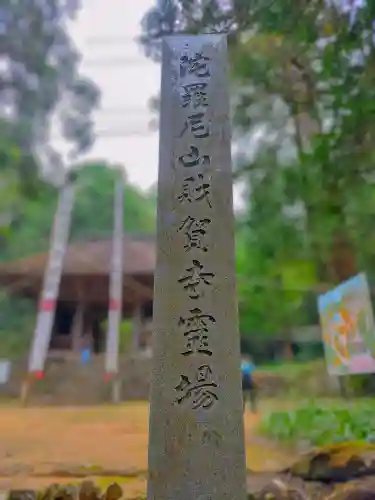 陀羅尼山財賀寺霊場